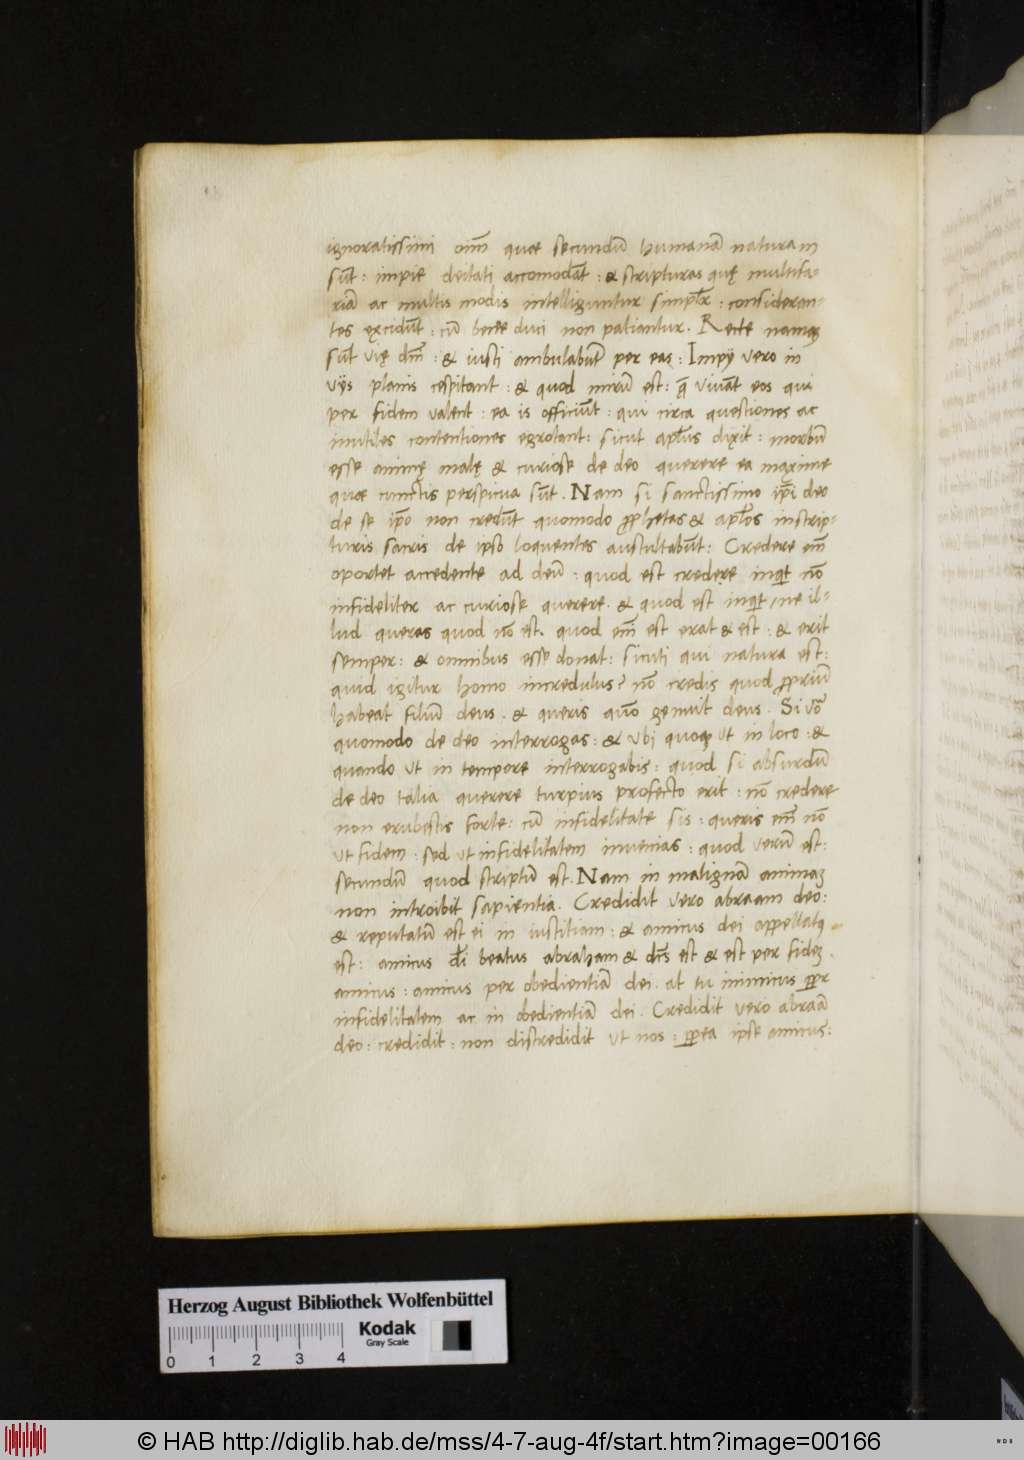 ignoratissimi om̅m quae secundū humanā naturam
sūt: impie deitati accomodāt: & scripturas quę multifa-
riā ac multis modis intelliguntur simpl̅r: consideran-
tes excidūt: cū bene duci non patiantur. Recte namq
sūt vię dm̅: & iusti ambulabūt per eas: Impÿ vero in
vÿs planis cespitant: & quod mirū est: q̄ vivāt eos qui
per fidem valent: ea is officiūt: qui circa questiones ac
inutiles contentiones egrotant: sicut ap̅lus dixit: morbū
esse animę malę & curiose de deo querere ea maxime
quae cunctis perspicua sūt. Nam si sanctissimo ip̅i deo
de se ip̅o non credūt quomodo prophetas & ap̅los in scrip-
turis sacris de ipso loquentes auscultabūt: Credere em̅
oportet accedente ad deū: quod est credere inq̅t nō
infideliter ac curiose querere. & quod est inq̅t, ne il-
lud queras quod nō est. quod em̅ est erat & est: & erit
semper: & omnibus esse donat: sicuti qui natura est:
quid igitur homo incredulus? nō credis quod propriū
habeat filiū deus. & queris quō genuit deus. Si vō
quomodo de deo interrogas: & ubi quoq ut in loco: &
quando ut in tempore interrogabis: quod si absurdū
de deo talia querere turpius profecto erit: nō credere
non erubescis forte: cū infidelitate sis: queris em̅ nō
ut fidem: sed ut infidelitatem invenias: quod verū est:
secundū quod scriptū est. Nam in malignā animaȝ
non introibit sapientia. Credidit vero abraam deo:
& reputatū est ei in iustitiam: & amicus dei appellatꝯ
est: amicus d̅i beatus abraham & dc̅s est & est per fideȝ.
amicus: amicus per obedientiā dei. at tu inimicus ꝓpr
infidelitatem ac in obedientiā dei. Credidit vero abraā
deo: credidit: non discredidit ut nos: ꝓpea ipse amicus:
Herzog August Bibliothek Wolfenbüttel
0 1 2 3 4
Kodak
Gray Scale
© HAB http://diglib.hab.de/mss/4-7-aug-4f/start.htm?image=00166